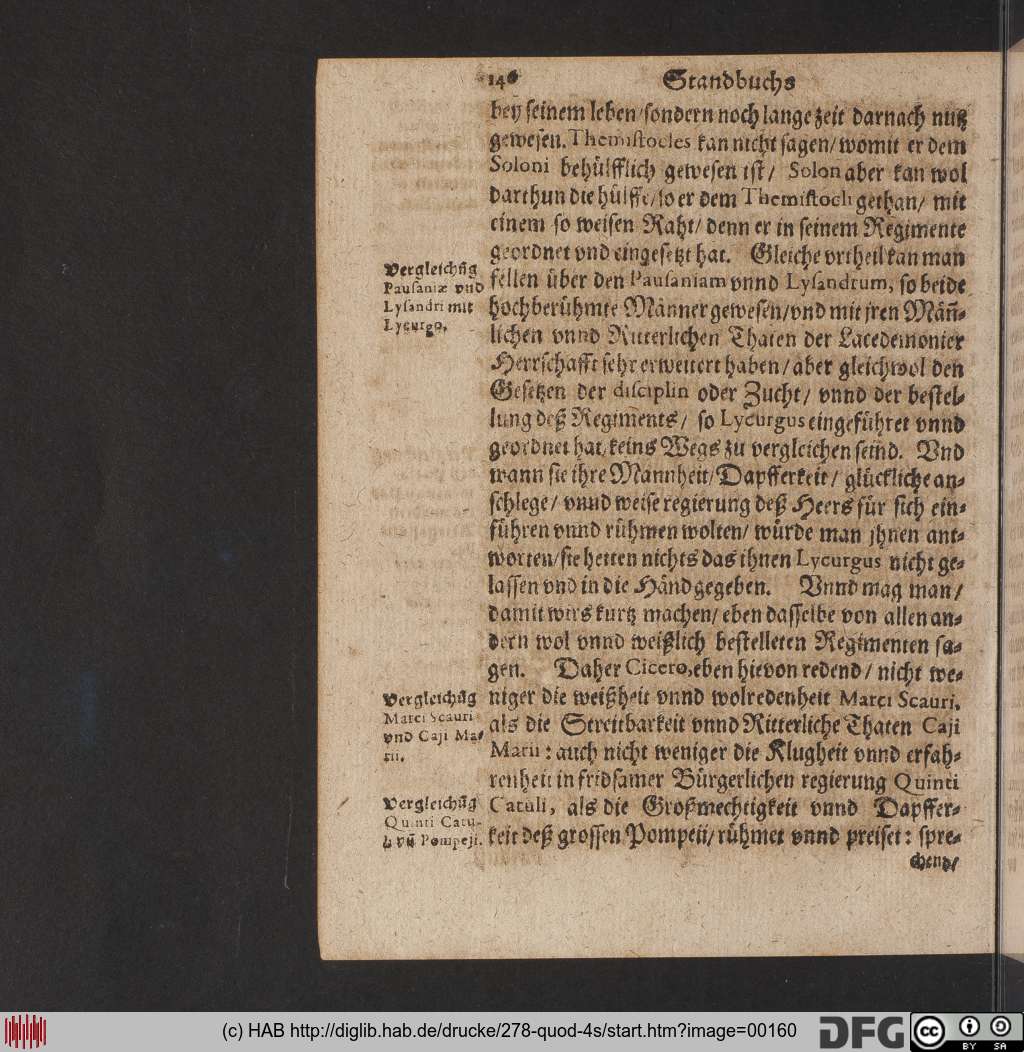 146 Standbuchs
bey seinem leben/sondern noch lange zeit darnach nutz
gewesen. Themistocles kan nicht sagen/womit er dem
Soloni behülfflich gewesen ist/ Solon aber kan wol
darthun die hülffe/so er dem Themistocli gethan/ mit
einem so weisen Raht/ denn er in seinem Regimente
geordnet vnd eingesetzt hat. Gleiche vrtheil kan man
fellen über den Pausaniam vnnd Lysandrum, so beide
hochberühmte Männer gewesen/vnd mit jren Mäñ-
lichen vnnd Ritterlichen Thaten der Lacedemonier
Herrschafft sehr erweitert haben/aber gleichwol den
Gesetzen der disciplin oder Zucht/ vnnd der bestel-
lung deß Regiments/ so Lycurgus eingeführet vnnd
geordnet hat/keins Wegs zu vergleichen seind. Vnd
wann sie ihre Mannheit/Dapfferkeit/ glückliche an-
schlege/ vnnd weise regierung deß Heers für sich ein-
führen vnnd rühmen wolten/ würde man jhnen ant-
worten/sie hetten nichts das ihnen Lycurgus nicht ge-
lassen vnd in die Händ gegeben. Vnnd mag man/
damit wirs kurtz machen/ eben dasselbe von allen an-
dern wol vnnd weißlich bestelleten Regimenten sa-
gen. Daher Cicero, eben hievon redend/ nicht we-
niger die weißheit vnnd wolredenheit Marci Scauri,
als die Streitbarkeit vnnd Ritterliche Thaten Caji
Marii: auch nicht weniger die Klugheit vnnd erfah-
renheit in fridsamer Bürgerlichen regierung Quinti
Catuli, als die Großmechtigkeit vnnd Dapffer-
keit deß grossen Pompeii/rühmet vnnd preiset: spre-
chend/
Vergleichũg
Pausaniæ vnd
Lysandri mit
Lycurgo.
Vergleichũg
Marci Scauri
vnd Caji Ma-
rii.
Vergleichũg
Quinti Catu-
li vñ Pompeji.
(c) HAB http://diglib.hab.de/drucke/278-quod-4s/start.htm?image=00160
DFG cc BY SA